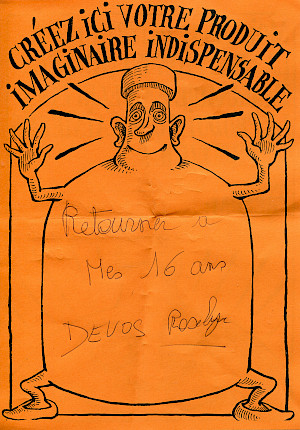 CRÉEZ ICI VOTRE PRODUIT
IMAGINAIRE INDISPENSABLE
Retourner à
Mes 16 ans
DEVOS Roselyne